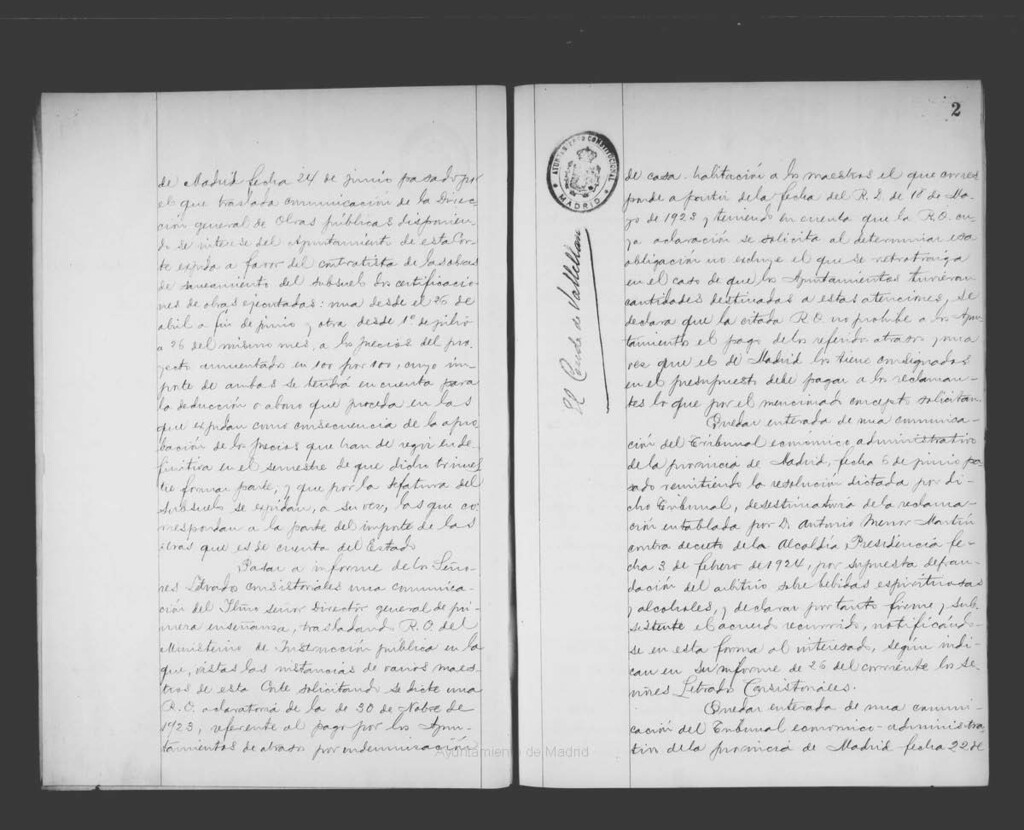 de Madrid fecha 24 de junio pasado por
el que traslada comunicación de la Direc-
ción general de Obras públicas disponien-
do se interese del Ayuntamiento de esta Cor-
te expida a favor del contratista de las obras
de saneamiento del subsuelo dos certificacio-
nes de obras ejecutadas: una desde el 26 de
abril a fin de junio y otra desde 1º de julio
a 26 del mismo mes, a los precios del pro-
yecto aumentado en 100 por 100, cuyo im-
porte de ambas se tendrá en cuenta para
la deducción o abono que proceda en las
que expidan como consecuencia de la apli-
cación de los precios que han de regir en de-
finitiva en el semestre de que dicho trimes-
tre forma parte, y que por la Jefatura del
Subsuelo se expidan, a su vez, las que co-
rrespondan a la parte del importe de las
obras que es de cuenta del Estado
Pasar a informe de los Seño-
res Letrados consistoriales una comunica-
ción del Iltmo señor Director general de pri-
mera enseñanza, trasladando R.O. del
Ministerio de Instrucción pública en la
que, vistas las instancias de varios maes-
tros de esta Corte solicitando se dicte una
R.O. aclaratoria de la de 30 de Nobre de
1923, referente al pago por los Ayun-
tamientos de atrasos por indemnización
2
AYUNTAMIENTO CONSTITUCIONAL
MADRID
El Conde de Vallellano
de casa-habitación a los maestros el que corres
ponde a partir de la fecha del R.D. de 18 de Ma-
yo de 1923 y teniendo en cuenta que la R.O. cu-
ya aclaración se solicita al determinar esa
obligación no excluye el que se retrotraiga
en el caso de que los Ayuntamientos tuvieran
cantidades destinadas a estas atenciones, se
declara que la citada R.O. no prohibe a los Ayun-
tamientos el pago de los referidos atrasos, y una
vez que el de Madrid los tiene consignados
en el presupuesto debe pagar a los reclaman-
tes lo que por el mencionado concepto solicitan.
Quedar enterada de una comunica-
ción del Tribunal económico administrativo
de la provincia de Madrid, fecha 6 de junio pa-
sado remitiendo la resolución dictada por di-
cho Tribunal, desestimatoria de la reclama-
ción entablada por D. Antonio Menor Martín
contra decreto de la Alcaldía Presidencia fe-
cha 3 de febrero de 1924, por supuesta defrau-
dación del arbitrio sobre bebidas espirituosas
y alcoholes, y declarar por tanto firme y sub-
sistente el acuerdo recurrido, notificándo-
se en esta forma al interesado, según indi-
can en su informe de 26 del corriente los se-
ñores Letrados Consistoriales.
Quedar enterada de una comuni-
cación del Tribunal económico-administra-
tivo de la provincia de Madrid fecha 22 de
Ayuntamiento de Madrid